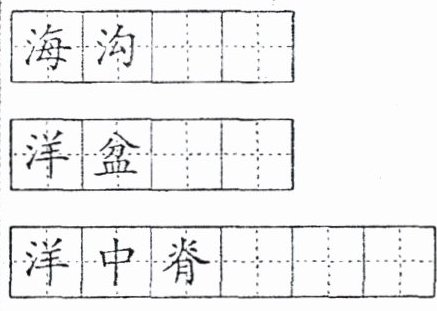 海沟
洋盆
洋中脊